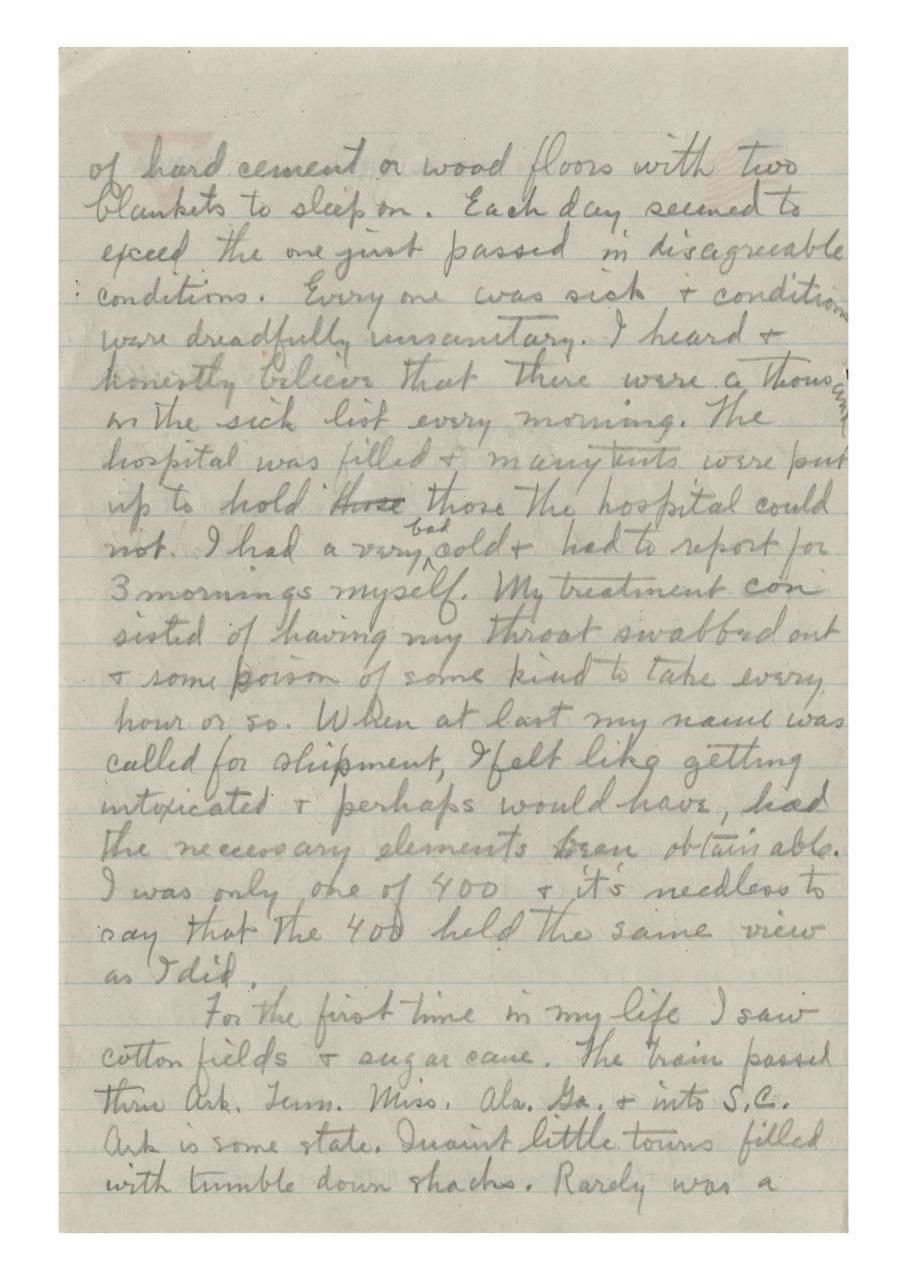 of hard cement or wood floors with two
blankets to sleep on. Each day seemed to
exceed the one just passed in disagreeable
conditions. Every one was sick + conditions
were dreadfully unsanitary. I heard +
honestly believe that there were a thousand
on the sick list every morning. The
hospital was filled + many tents were put
up to hold those those the hospital could
not. I had a very bad cold + had to report for
3 mornings myself. My treatment con
sisted of having my throat swabbed out
+ some poison of some kind to take every
hour or so. When at last my name was
called for shipment, I felt like getting
intoxicated + perhaps would have, had
the necessary elements been obtainable.
I was only one of 400 + it's needless to
say that the 400 held the same view
as I did.
For the first time in my life I saw
cotton fields + sugar cane. The train passed
thru Ark. Tenn. Miss. Ala. Ga. + into S.C.
Ark is some state. Quaint little towns filled
with tumble down shacks. Rarely was a